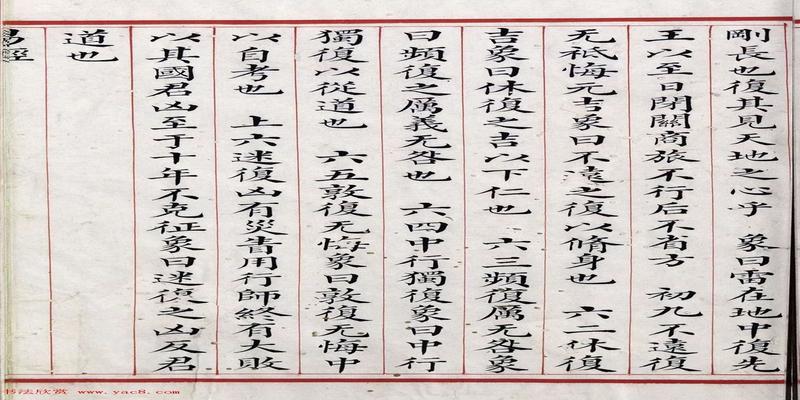 剛長也復其見天地之心乎 象曰雷在地中復先
王以至日閉關商旅不行后不省方 初九不遠復
无祗悔元吉象曰不遠之復以脩身也 六二休復
吉象曰休復之吉以下仁也 六三頻復厲无咎象
曰頻復之厲義无咎也 六四中行獨復象曰中行
獨復以從道也 六五敦復无悔象曰敦復无悔中
以自考也 上六迷復凶有災眚用行師終有大敗
以其國君凶至于十年不克征象曰迷復之凶反君
道也
易經
书法欣赏 www.yac8.com